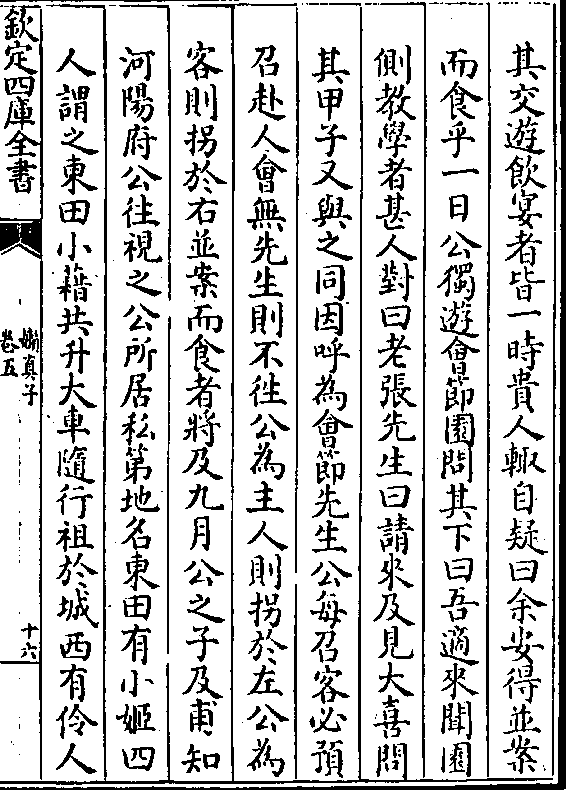 其交遊飲宴者皆一時貴人輙自疑曰余安得並案
而食乎一日公獨遊會節園問其下曰吾適來聞園
側教學者甚人對曰老張先生曰請來及見大喜問
其甲子又與之同因呼為會節先生公每召客必預
召赴人會無先生則不徃公為主人則拐於左公為
客則拐於右並案而食者將及九月公之子及甫知
河陽府公往視之公所居私第地名東田有小姬四
人謂之東田小藉共升大車隨行祖於城西有伶人
欽定四庫全書
嬾真子
卷五
十六